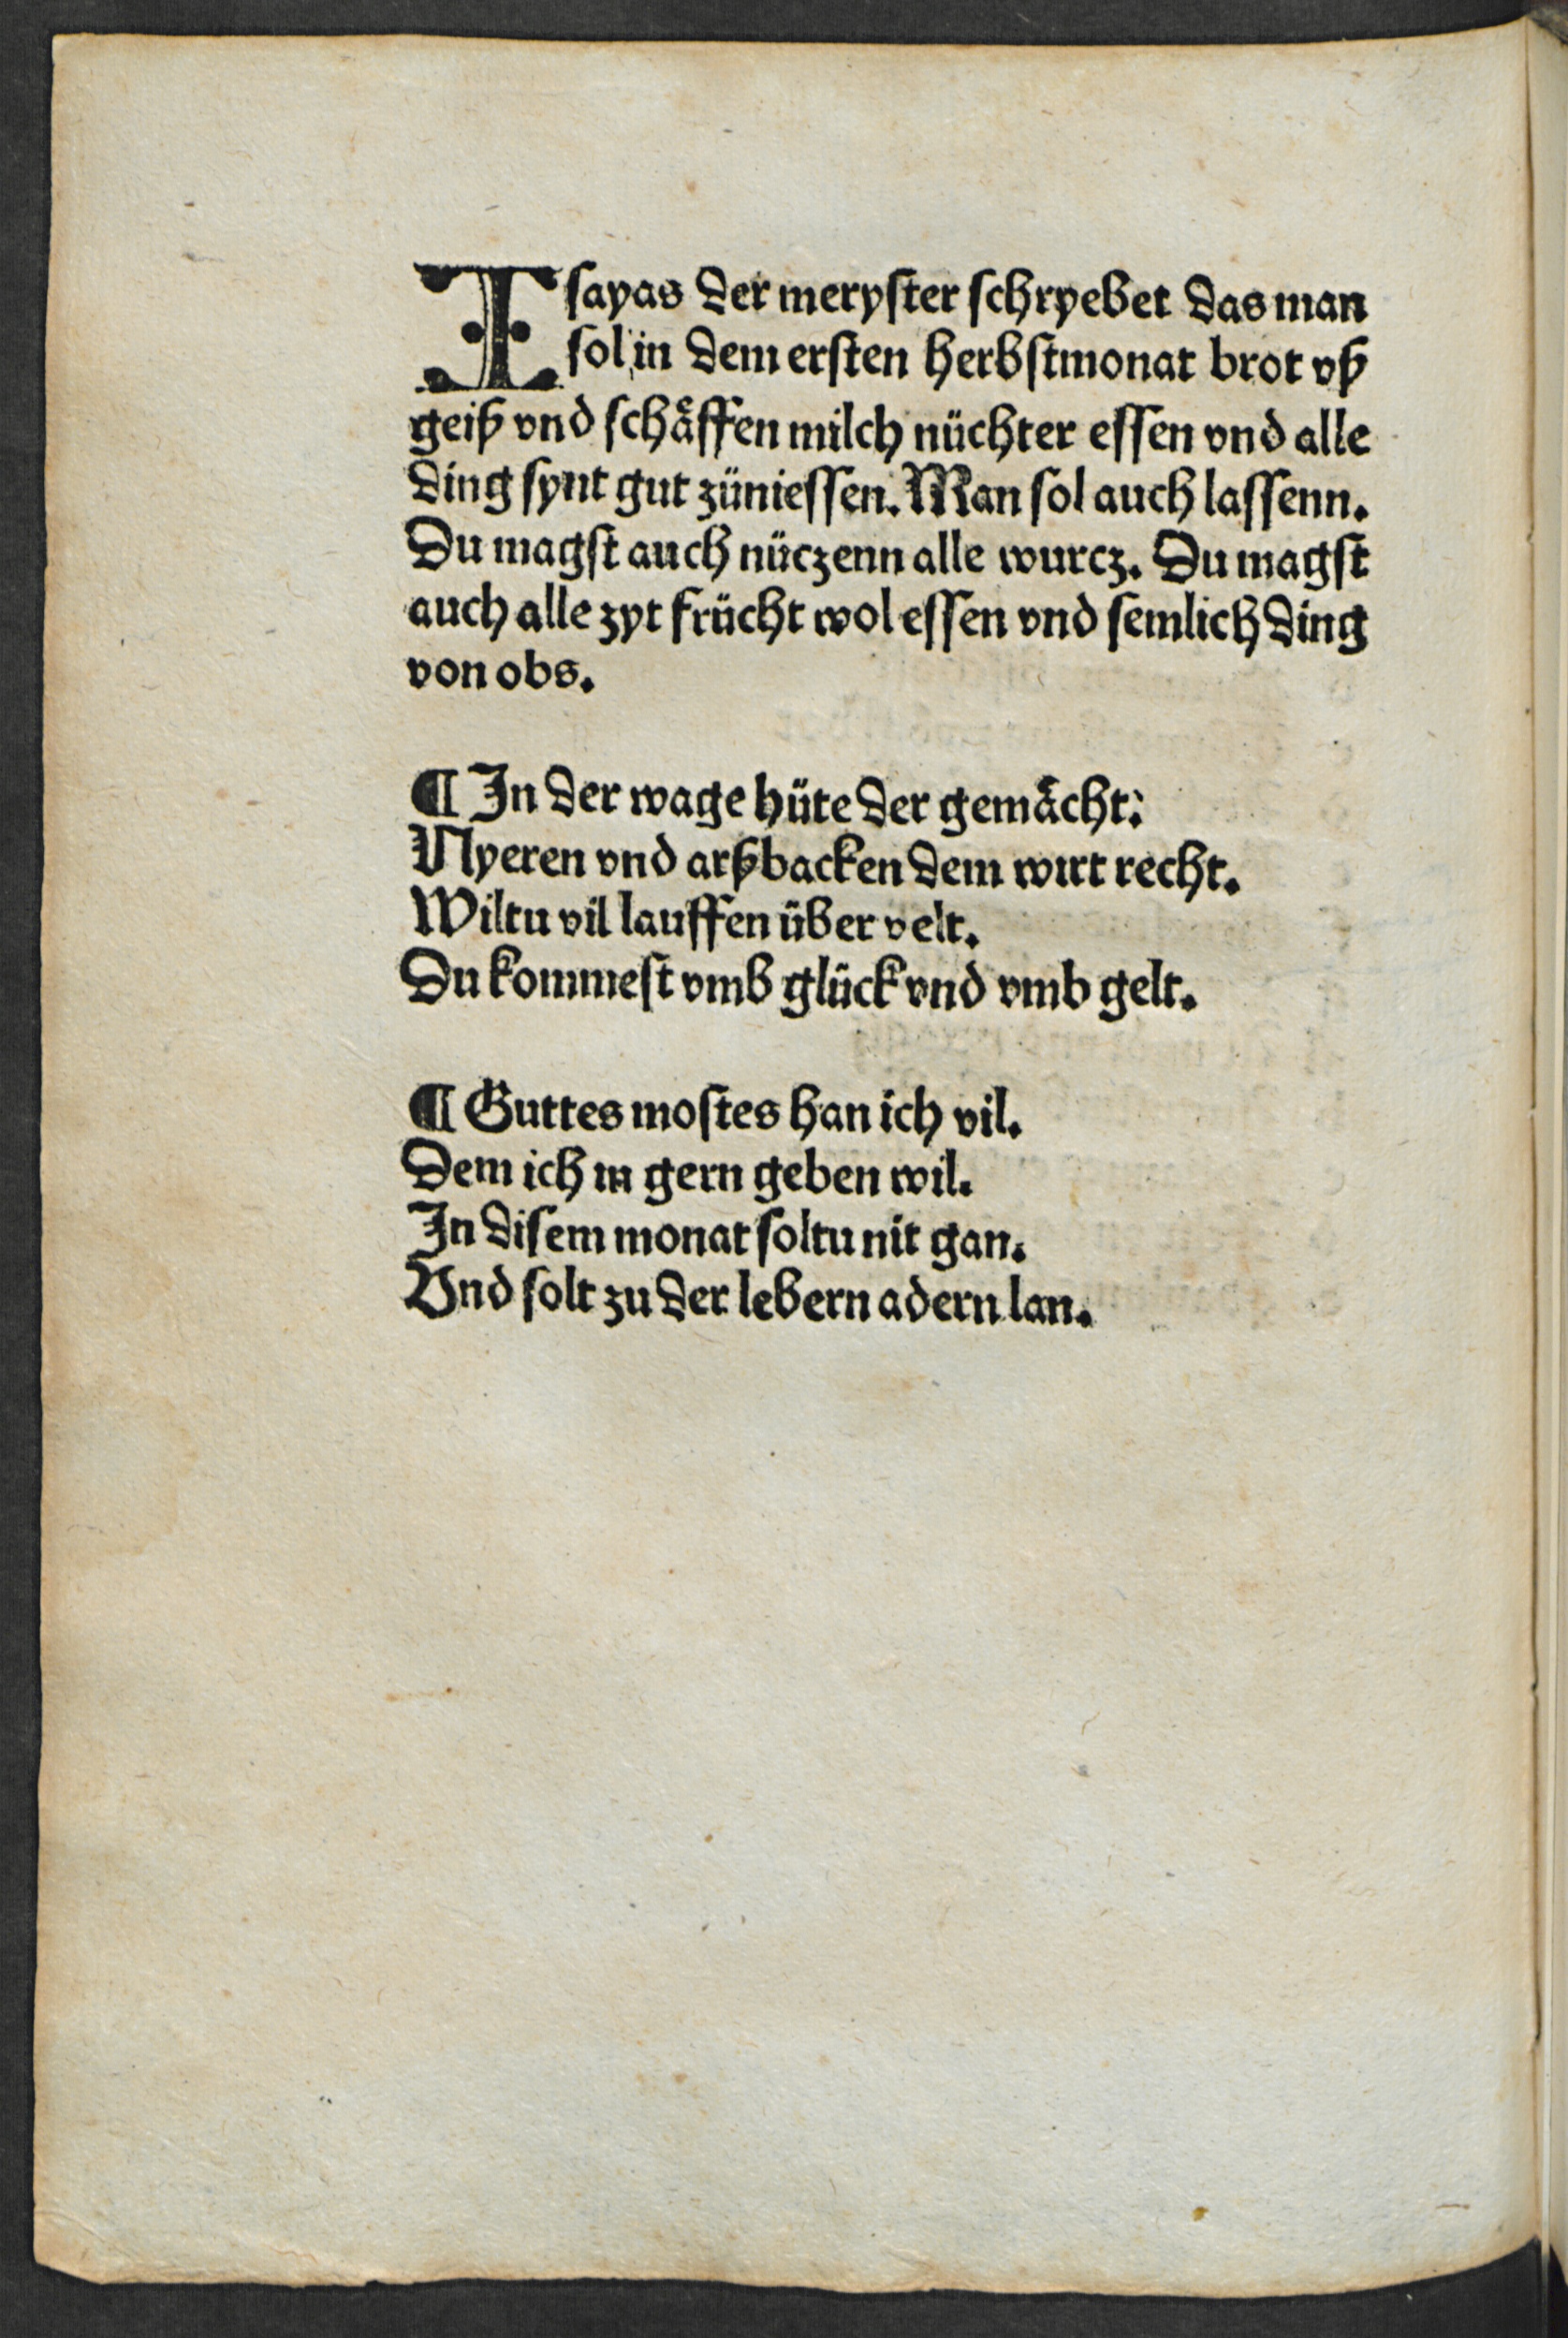 Isayas der meryster schryebet das man
sol in dem ersten herbstmonat brot vß
geiß vnd schåffen milch nüchter essen vnd alle
ding synt gut züniessen. Man sol auch lassenn.
Du magst auch nüczenn alle wurcz. Du magst
auch alle zyt frücht wol essen vnd semlich ding
von obs.
¶ In der wage hüte der gemächt:
Nyeren vnd arßbacken dem wirt recht.
Wiltu vil lauffen über velt.
Du kommest vmb glück vnd vmb gelt.
¶ Guttes mostes han ich vil.
Dem ich in gern geben wil.
In disem monat soltu nit gan.
Vnd solt zu der lebern adern lan.